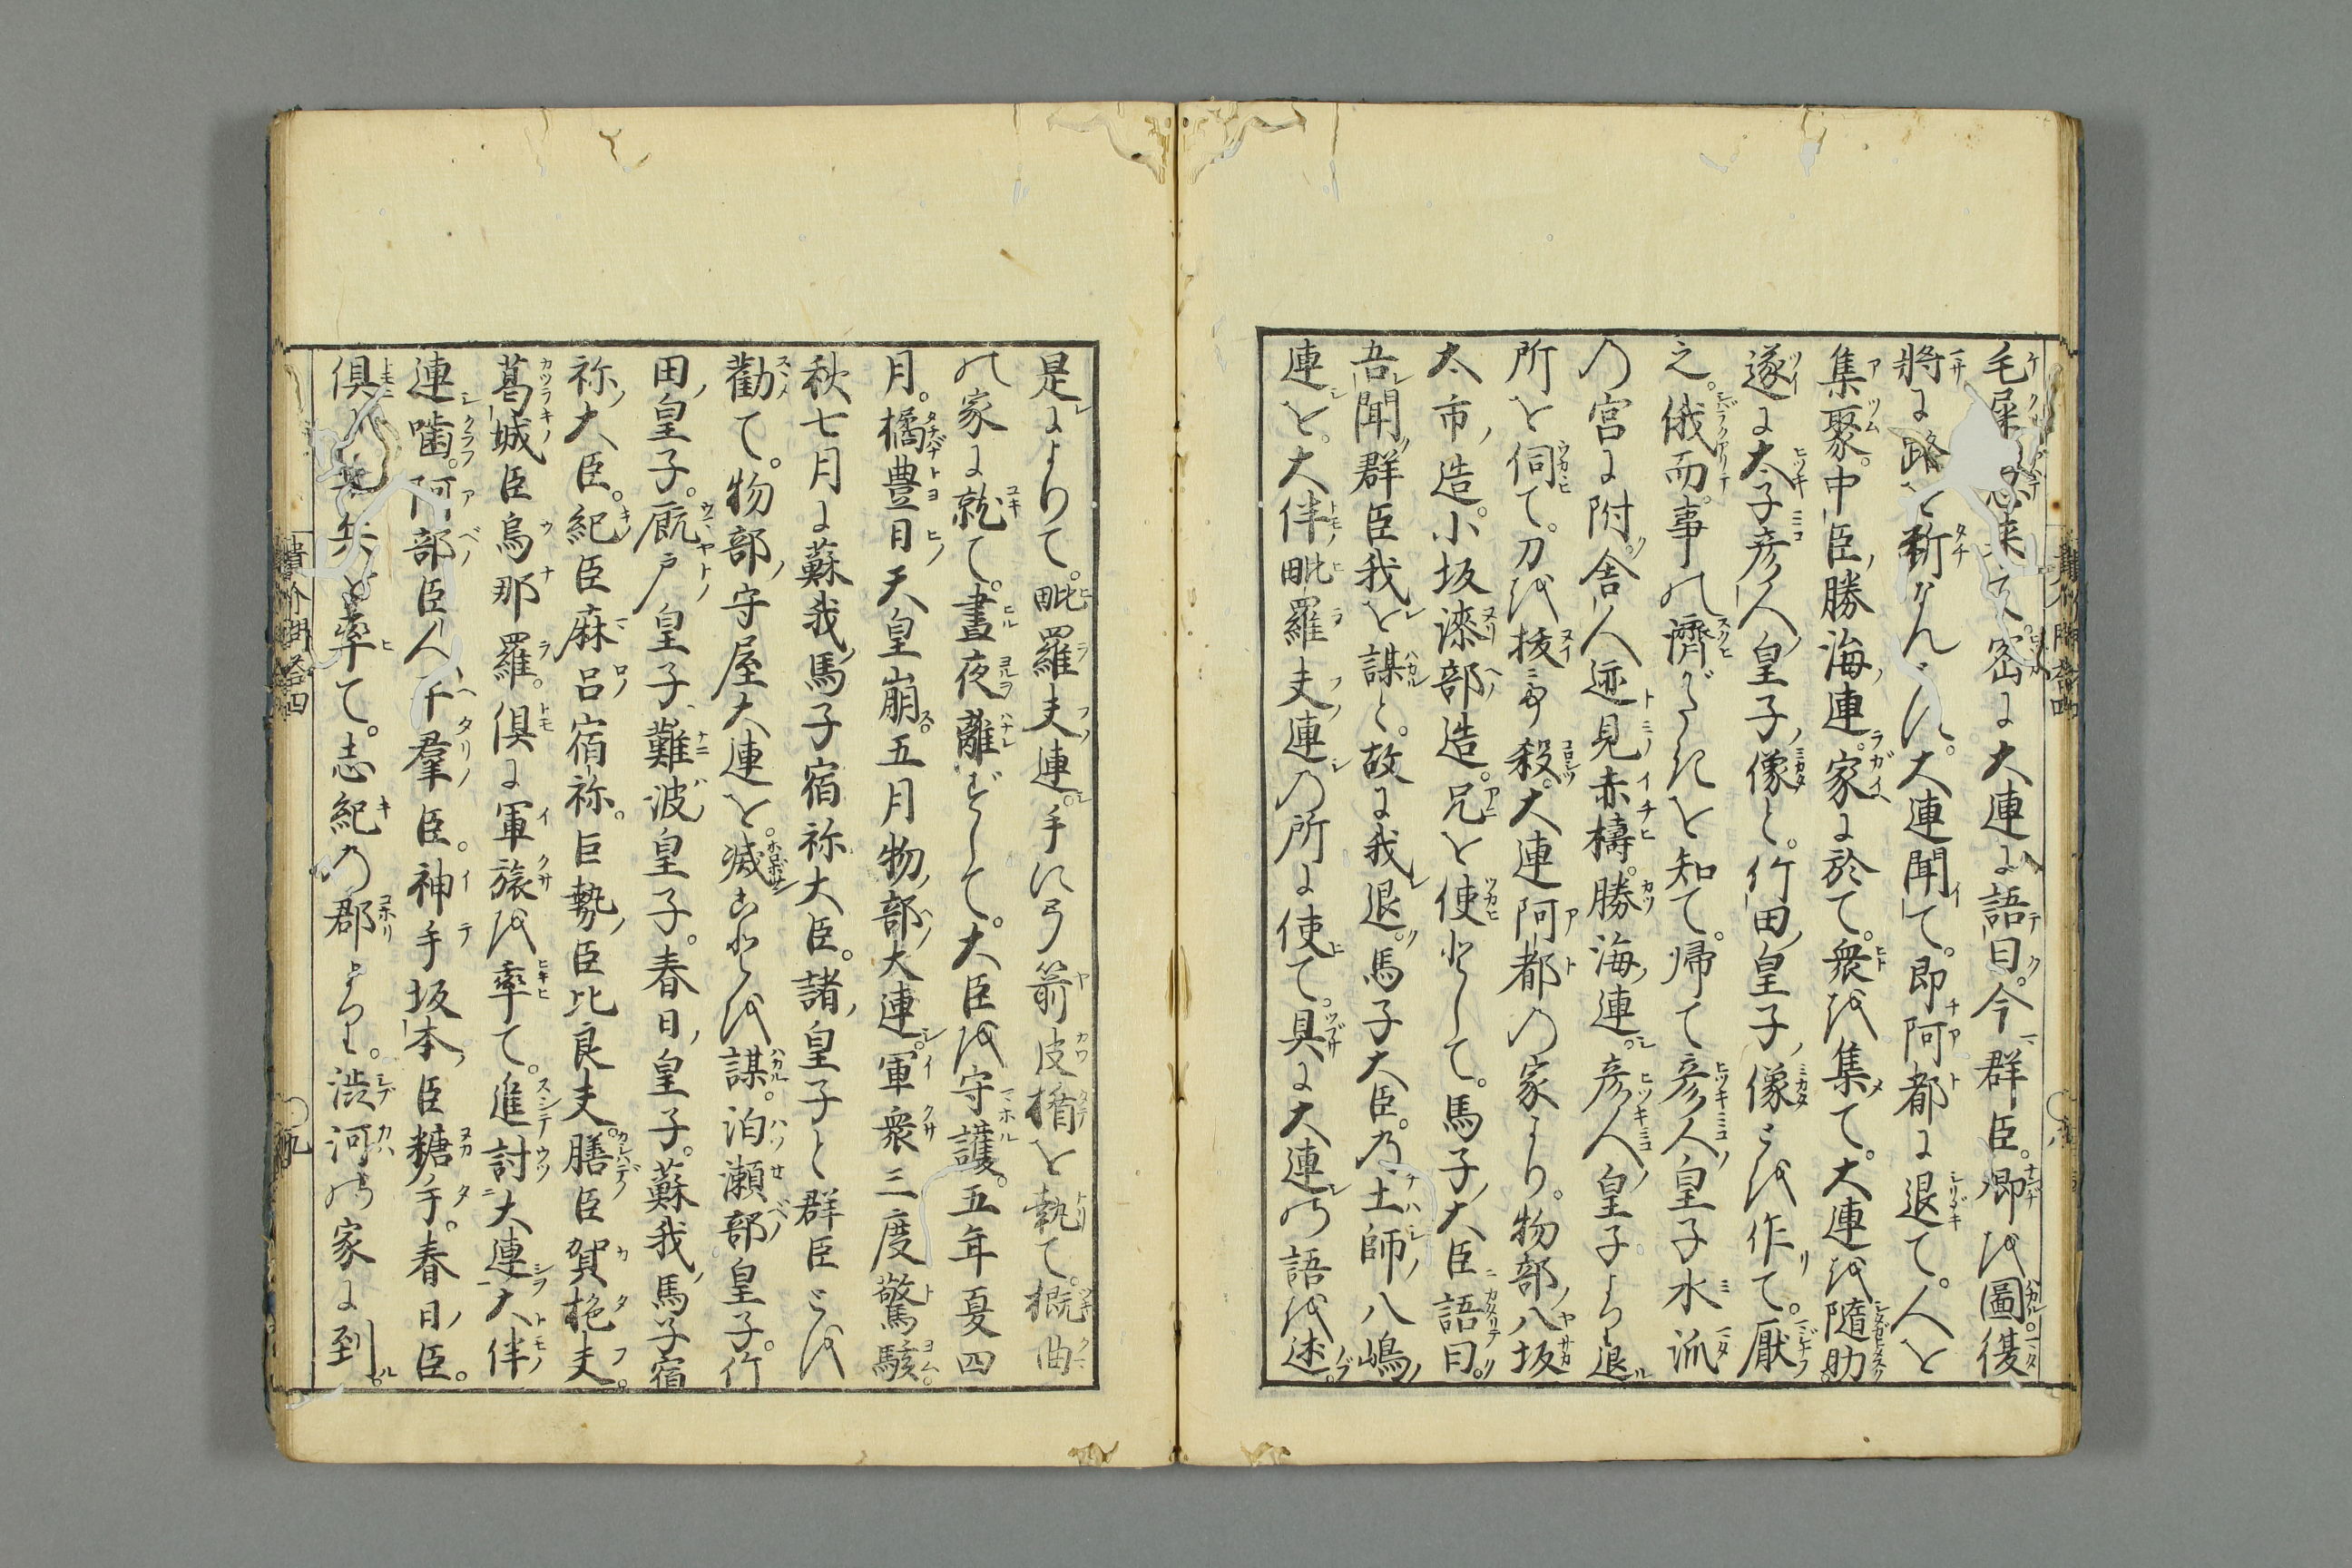 毛屎急来て密に大連に語曰。今群臣。卿を圖。復
將に路を斬なんとす。大連聞て。即阿都に退て。人を
集聚。中臣勝海連。家に於て。衆を集て。大連を隨助
遂に太子彦人皇子像と。竹田皇子像とを作て。厭
之。俄而事の濟がたきを知て。帰て彦人皇子水派
の宮に附。舎人迹見赤檮。勝海連。彦人皇子より退
所を伺て。刀を抜て殺。大連阿都の家より。物部八坂
太市造。小坂漆部造。兄を使として。馬子大臣語曰。
吾聞群臣我を謀と。故に我退。馬子大臣。乃土師八嶋
連を。大伴毗羅夫連の所に使て。具に大連の語を述。
是によりて。毗羅夫連。手に弓箭皮楯を執て。槻曲
の家に就て。晝夜離ずして。大臣を守護。五年夏四
月。橘豊日天皇崩。五月物部大連。軍衆三度驚駭。
秋七月に蘇我馬子宿祢大臣。諸皇子と群臣とを
勸て。物部守屋大連を。滅ことを謀。泊瀬部皇子。竹
田皇子。廐戸皇子。難波皇子。春日皇子。蘇我馬子宿
祢大臣。紀臣麻呂宿祢。巨勢臣比良夫。膳臣賀拖夫。
葛城臣烏那羅。倶に軍旅を率て。進討大連。大伴
連嚙。阿部臣人。平羣臣。神手坂本臣糖手。春日臣。
倶に兵を率て。志紀の郡より。渋河の家に到。